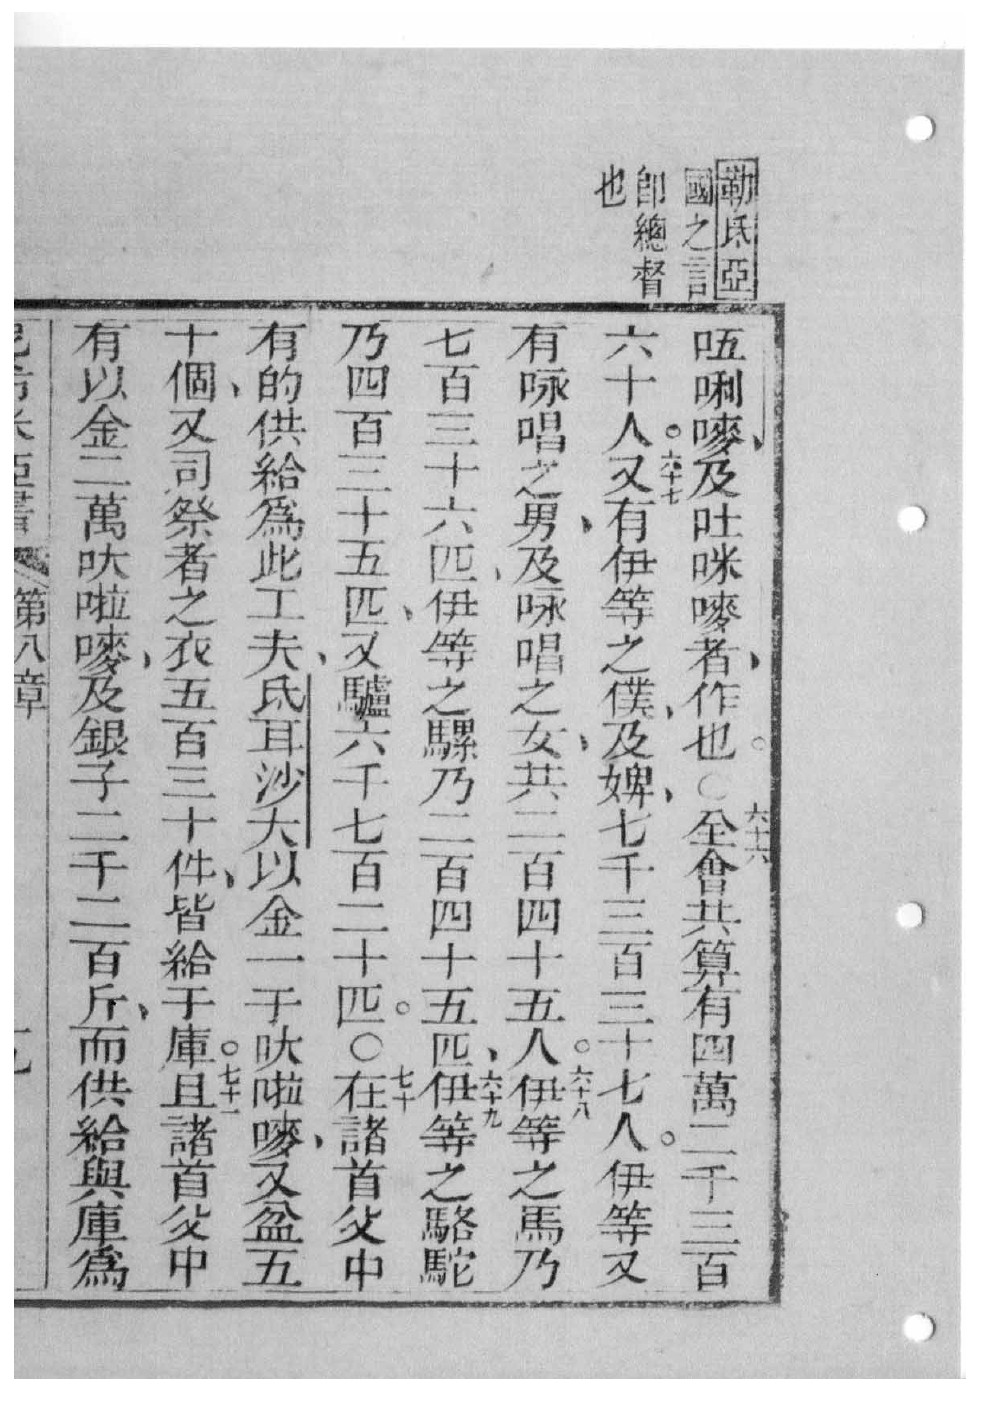 勒氐亞
國之言
卽總督
也
呧唎嘜、及吐咪嘜者、作也。○六十六全會共算有四萬二千三百
六十人。六十七又有伊等之僕、及婢、七千三百三十七人。伊等又
有咏唱之男、及咏唱之女、共二百四十五人。六十八伊等之馬乃
七百三十六匹、伊等之騾乃二百四十五匹、六十九伊等之駱駝
乃四百三十五匹、又驢六千七百二十匹。○七十在諸首父中
有的供給爲此工夫、氐耳沙大以金一千吠啦嘜、又盆五
十個、又司祭者之衣五百三十件、皆給于庫。七十一且諸首父中
有以金二萬吠啦嘜、及銀子二千二百斤、而供給與庫爲
亞書 第八章